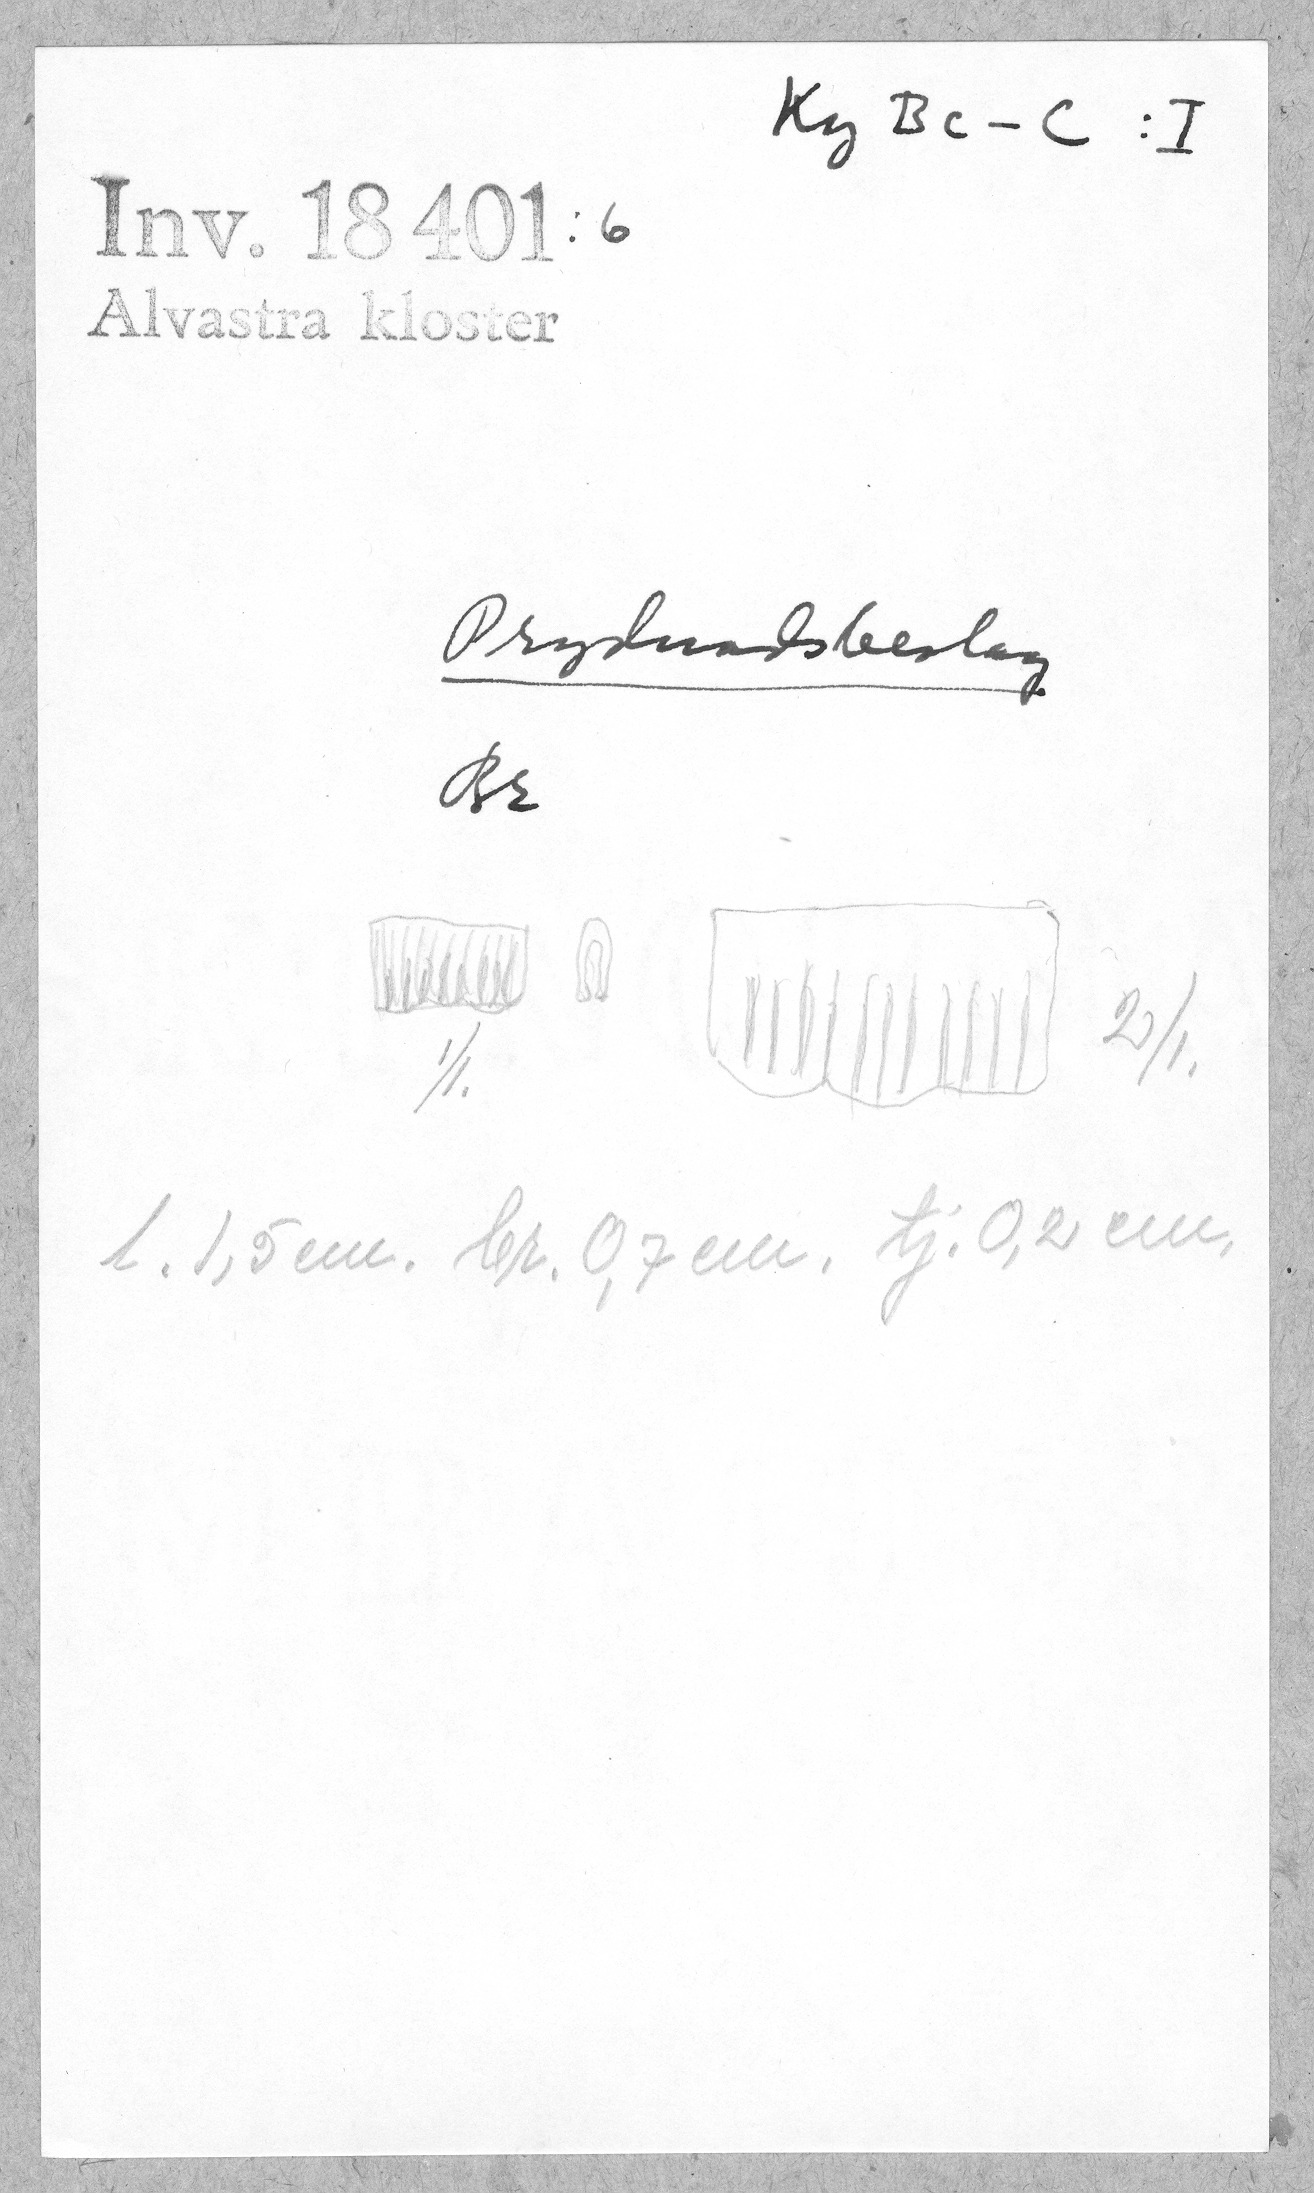 Ky Bc – C : I
Inv. 18 401 : 6
Alvastra kloster
Prydnadsbeslag
Br
1/1.
2/1.
l. 1,5 cm. br. 0,7 cm. tj. 0,2 cm.